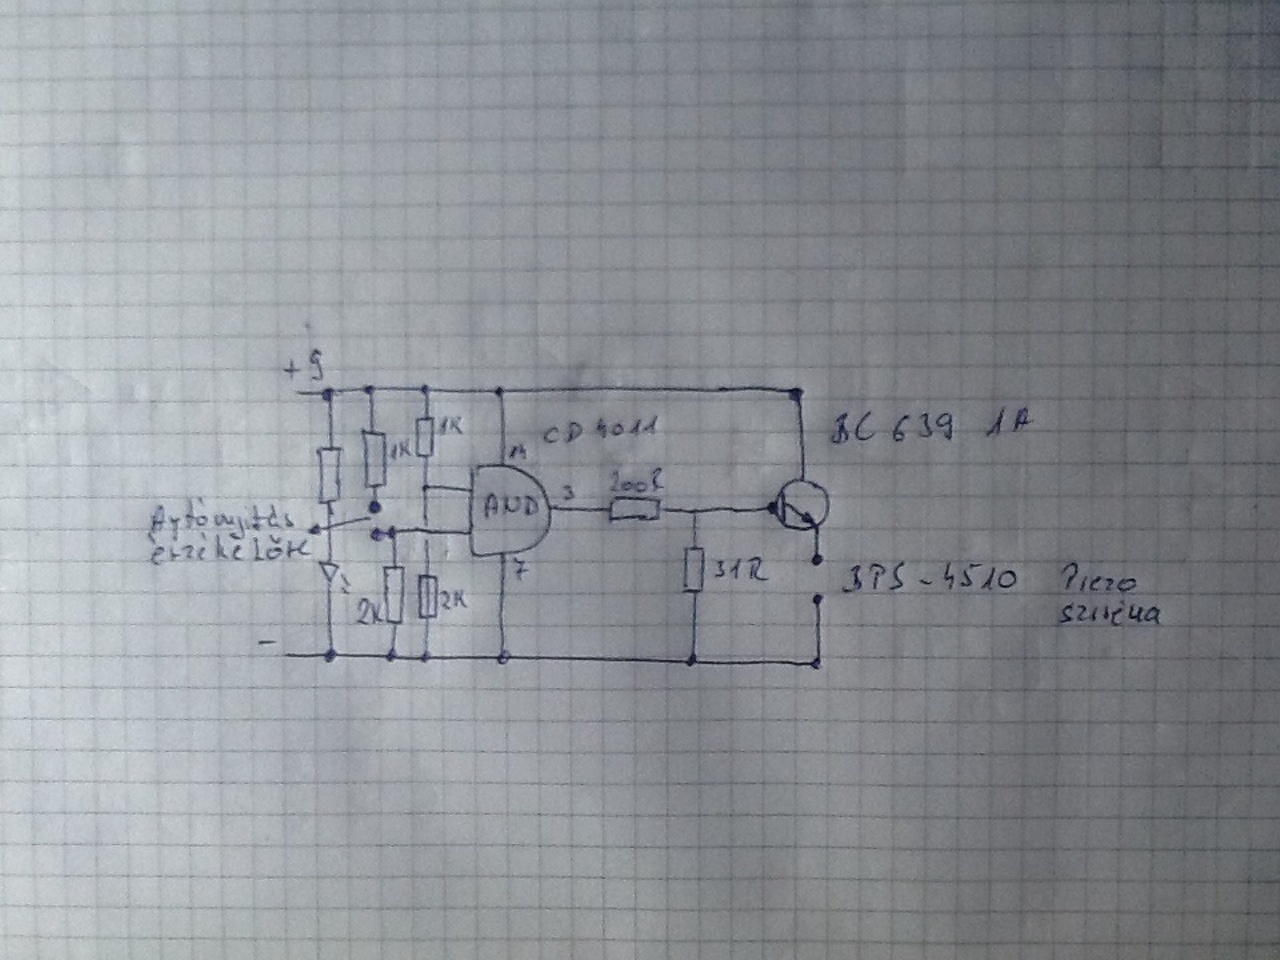 +9
1K
1K
CD 4011
14
BC 639 1A
AND
3
200R
Ajtónyitás
érzékelők
7
31R
2K
2K
BPS-4510 Piezo
sziréna
-